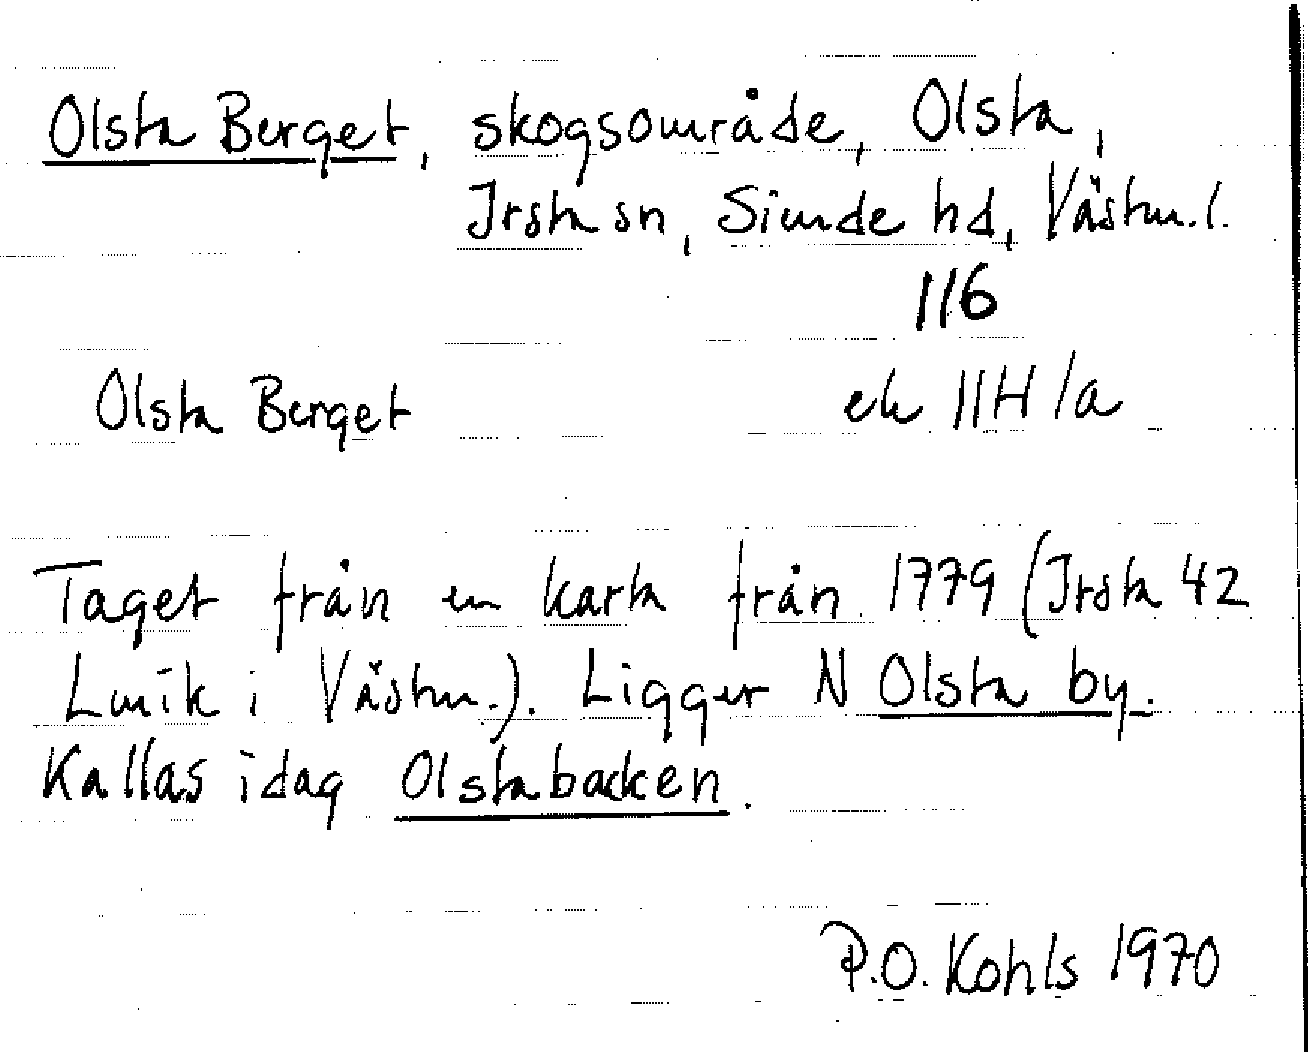 Olsta Berget, skogsområde, Olsta,
Irsta sn, Siende hd, Västm. l.
116
Olsta Berget ek 11H/a
Taget från en karta från 1779 (Irsta 42
Lmtk i Västm.). Ligger N Olsta by.
Kallas idag Olstabacken.
P.O. Kohls 1970